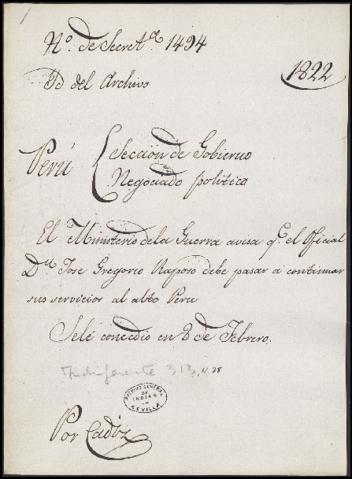 Nº. de Secretª. 1494
1822
Yd del Archivo
Perú
Sección de Gobierno
Negociado político
El Ministerio de la Guerra avisa qe. el Oficial
Dn. Jose Gregorio Rapposo debe pasar á continuar
sus servicios al alto Perú
Se lé concedió en 8 de Febrero.
Indiferente 313 N. 78
ARCHIVO GENERAL
DE
INDIAS
SEVILLA
Por Cadiz